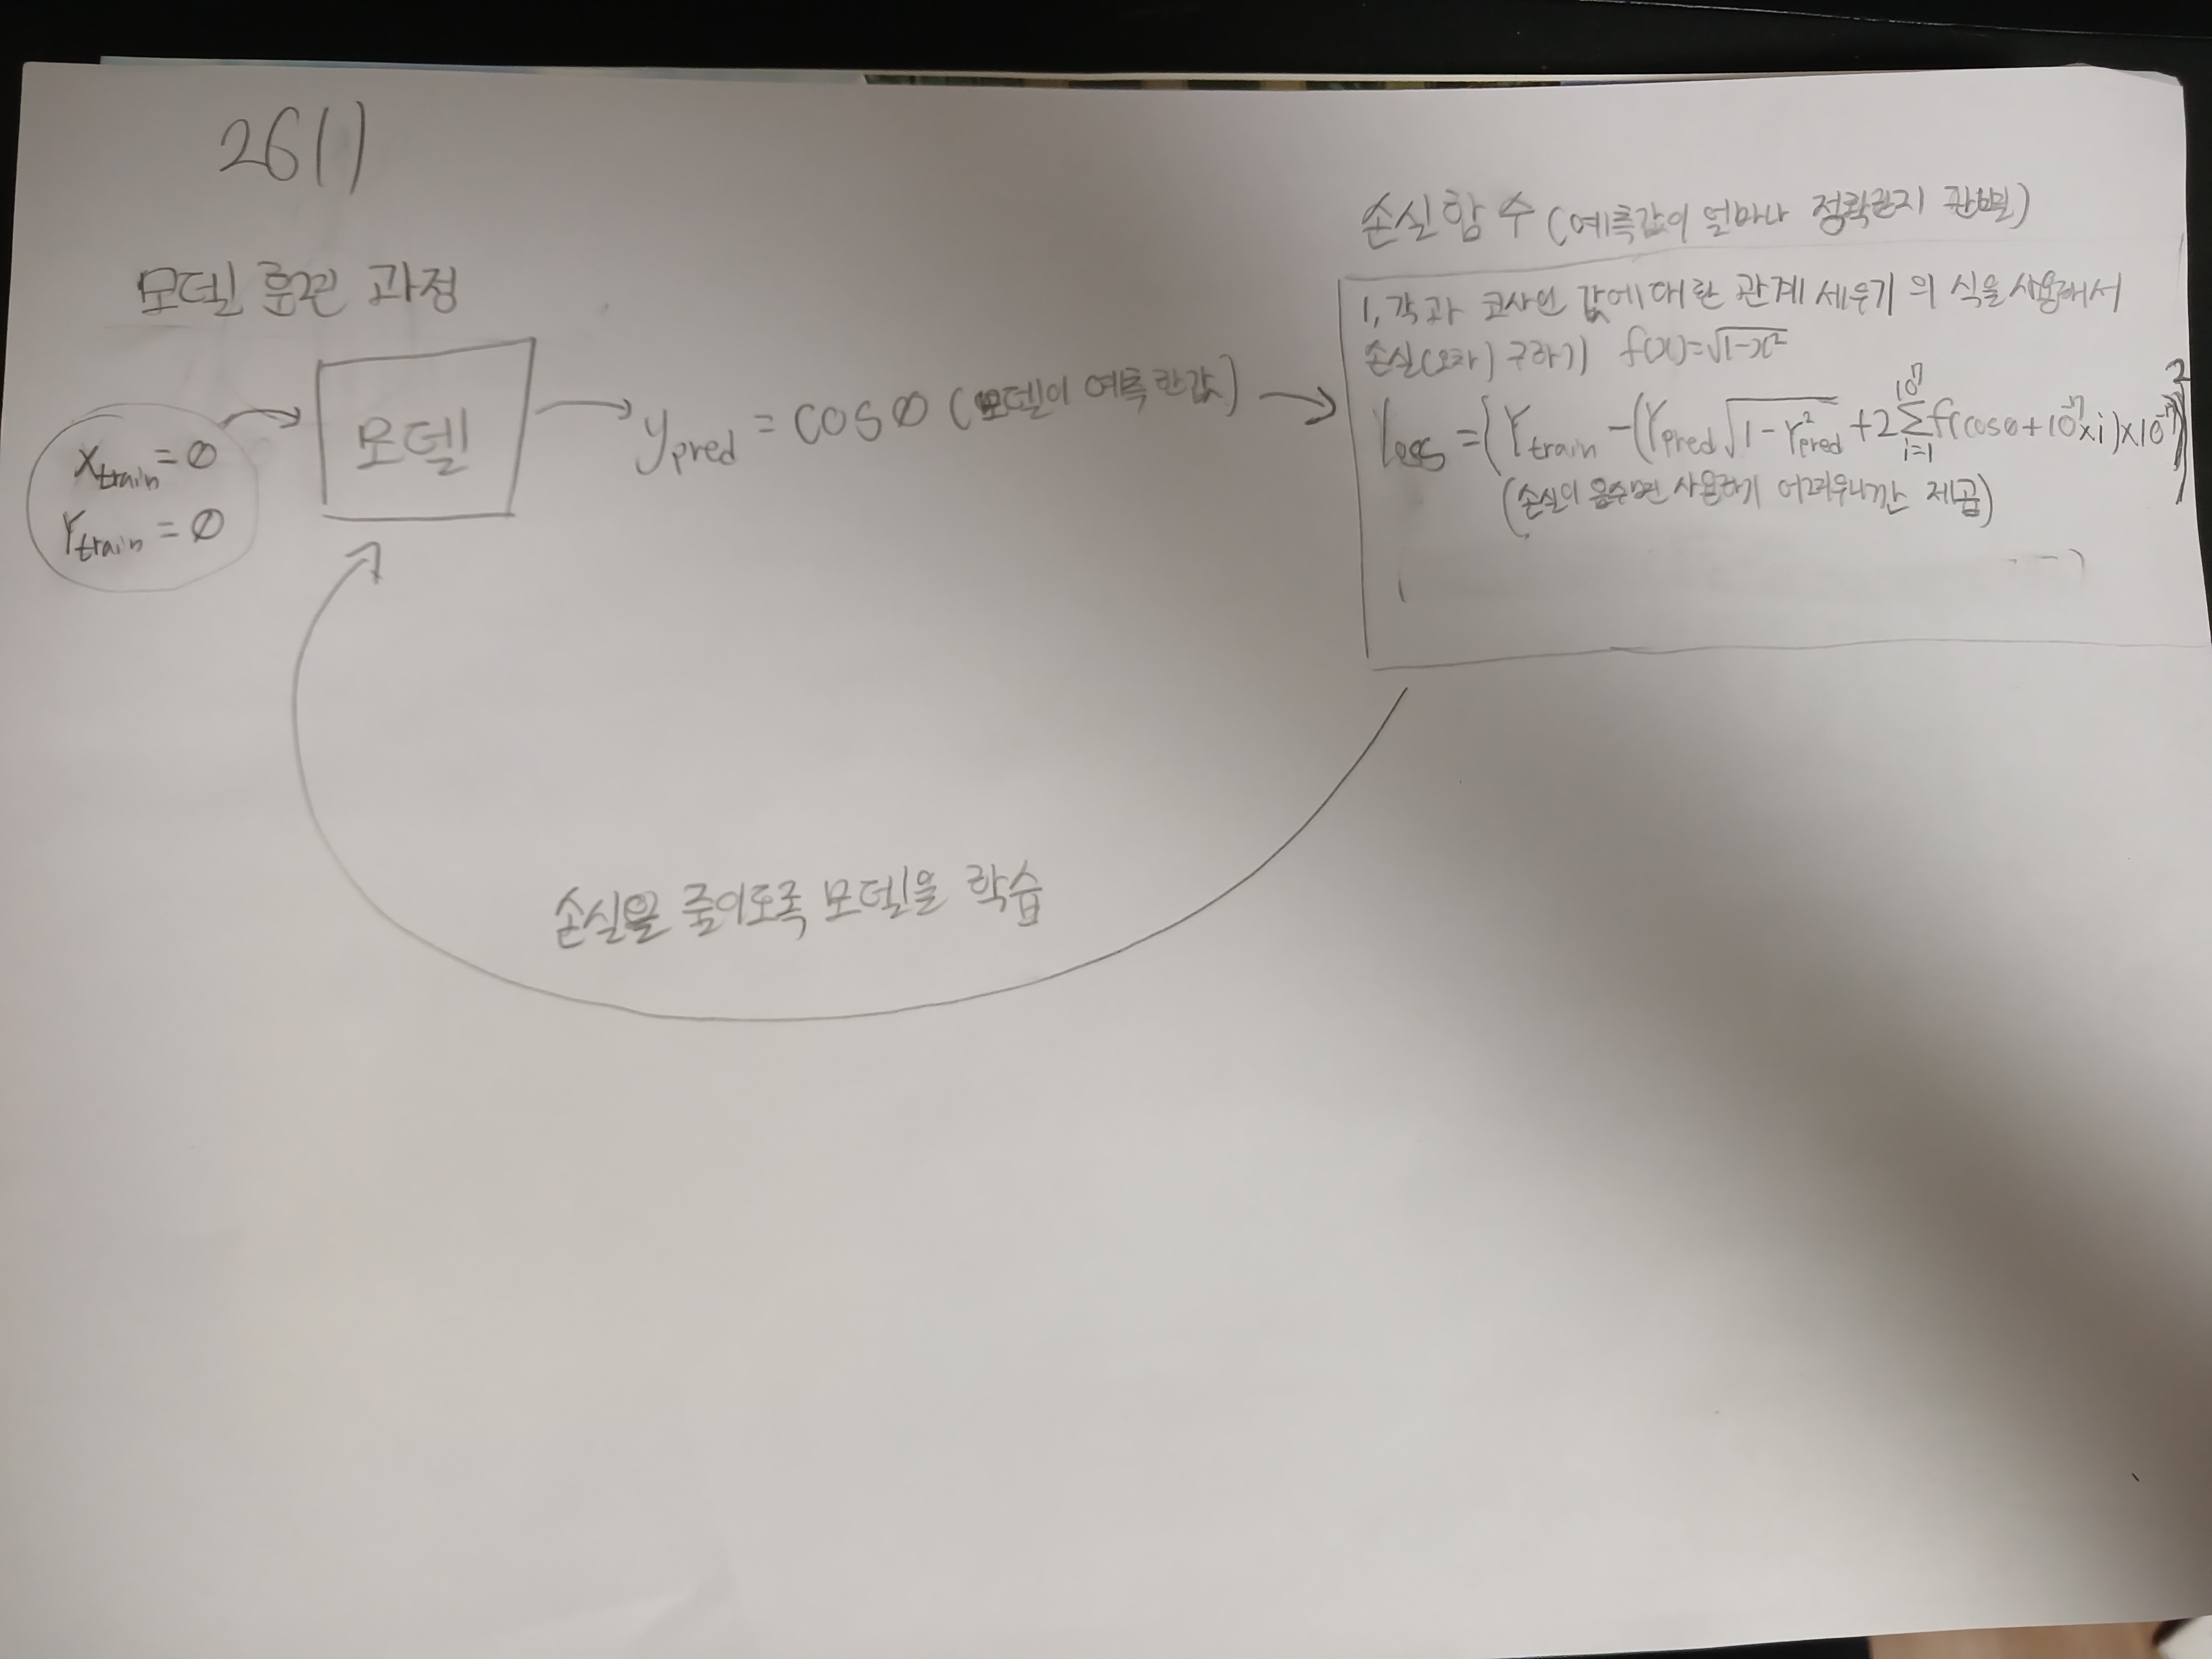 2611
모델 훈련 과정
X_train = θ
Y_train = θ
모델
y_pred = cosθ (모델이 예측한값)
손실함수 (예측값이 얼마나 정확한지 판별)
1, 각과 코사인 값에대한 관계세우기 의 식을 사용해서
손실(오차) 구하기 f(x)=√1-x²
Y_loss = (Y_train - (Y_pred√1-Y_pred² + 2∑_{i=1}^{10^7} f(cosθ+10^-7×i)×10^-7))²
(손실이 음수면 사용하기 어려우니깐 제곱)
손실을 줄이도록 모델을 학습